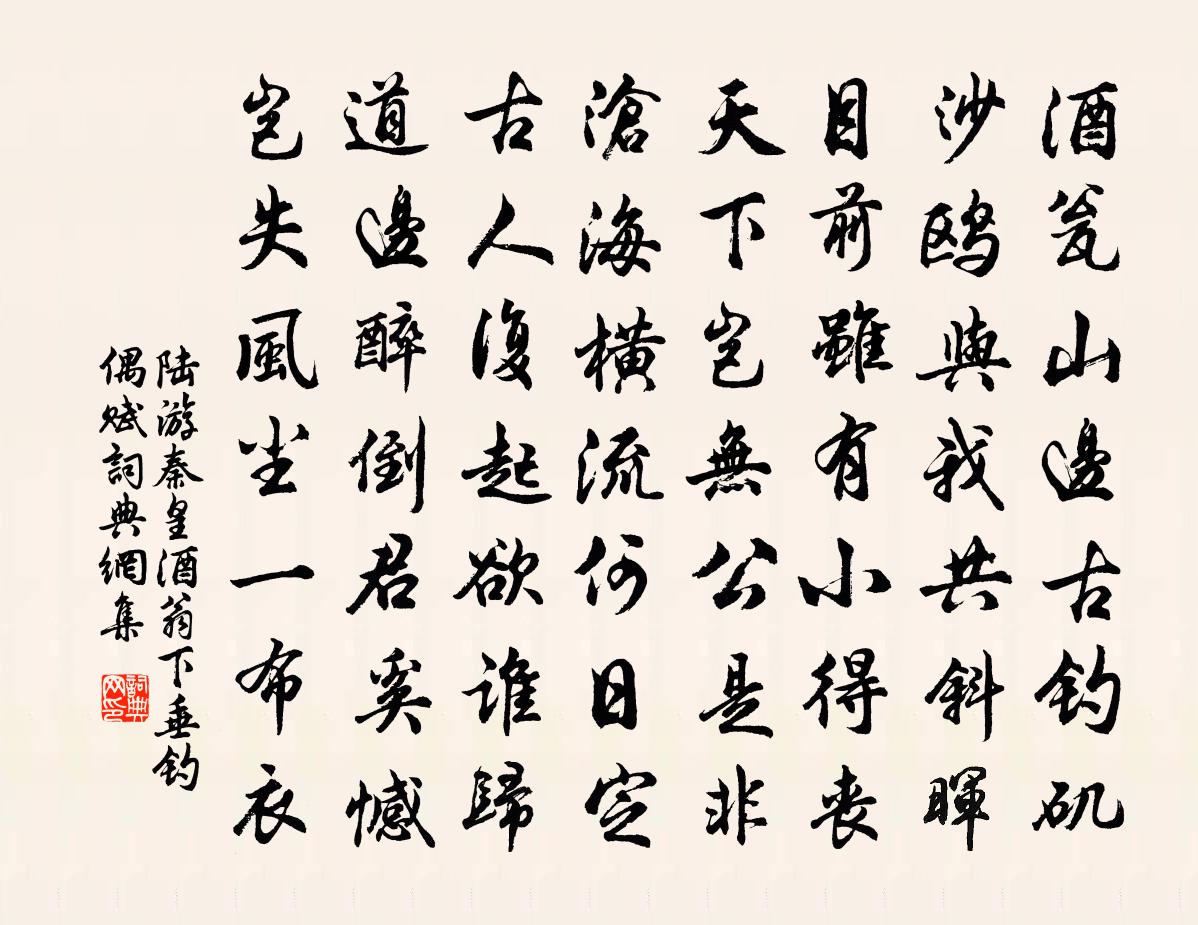 酒瓮山邊古钓矶
沙鸥與我共斜暉
目前雖有小得丧
天下岂無公是非
滄海横流何日定
古人復起欲谁歸
道邊醉倒君奚憾
岂失風尘一布衣
陆游秦皇酒翁下垂钓
偶赋詞典網集
詞典
网印